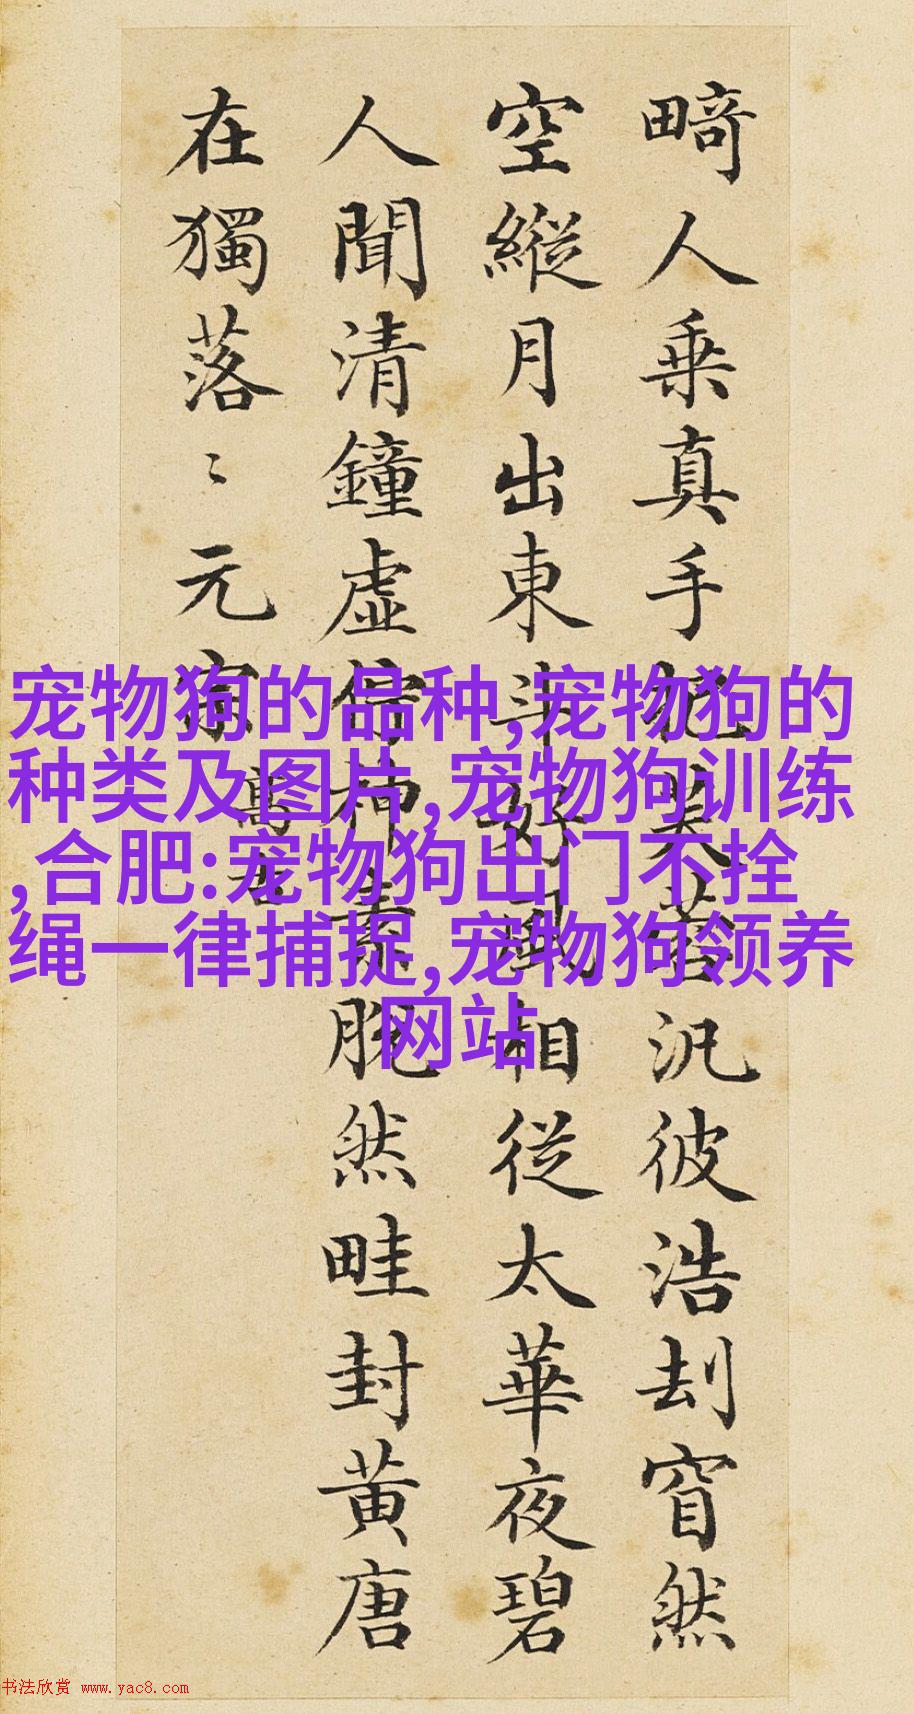 畸人乗真手把芙蓉汎彼浩刦窅然
空縱月出東斗好風相從太華夜碧
人聞清鐘虛佇神素脫然畦封黃唐
在獨落〻元宗
高古
宠物狗的品种,宠物狗的
种类及图片,宠物狗训练
,合肥:宠物狗出门不拴
绳一律捕捉,宠物狗领养
网站
书法欣赏 www.yac8.com